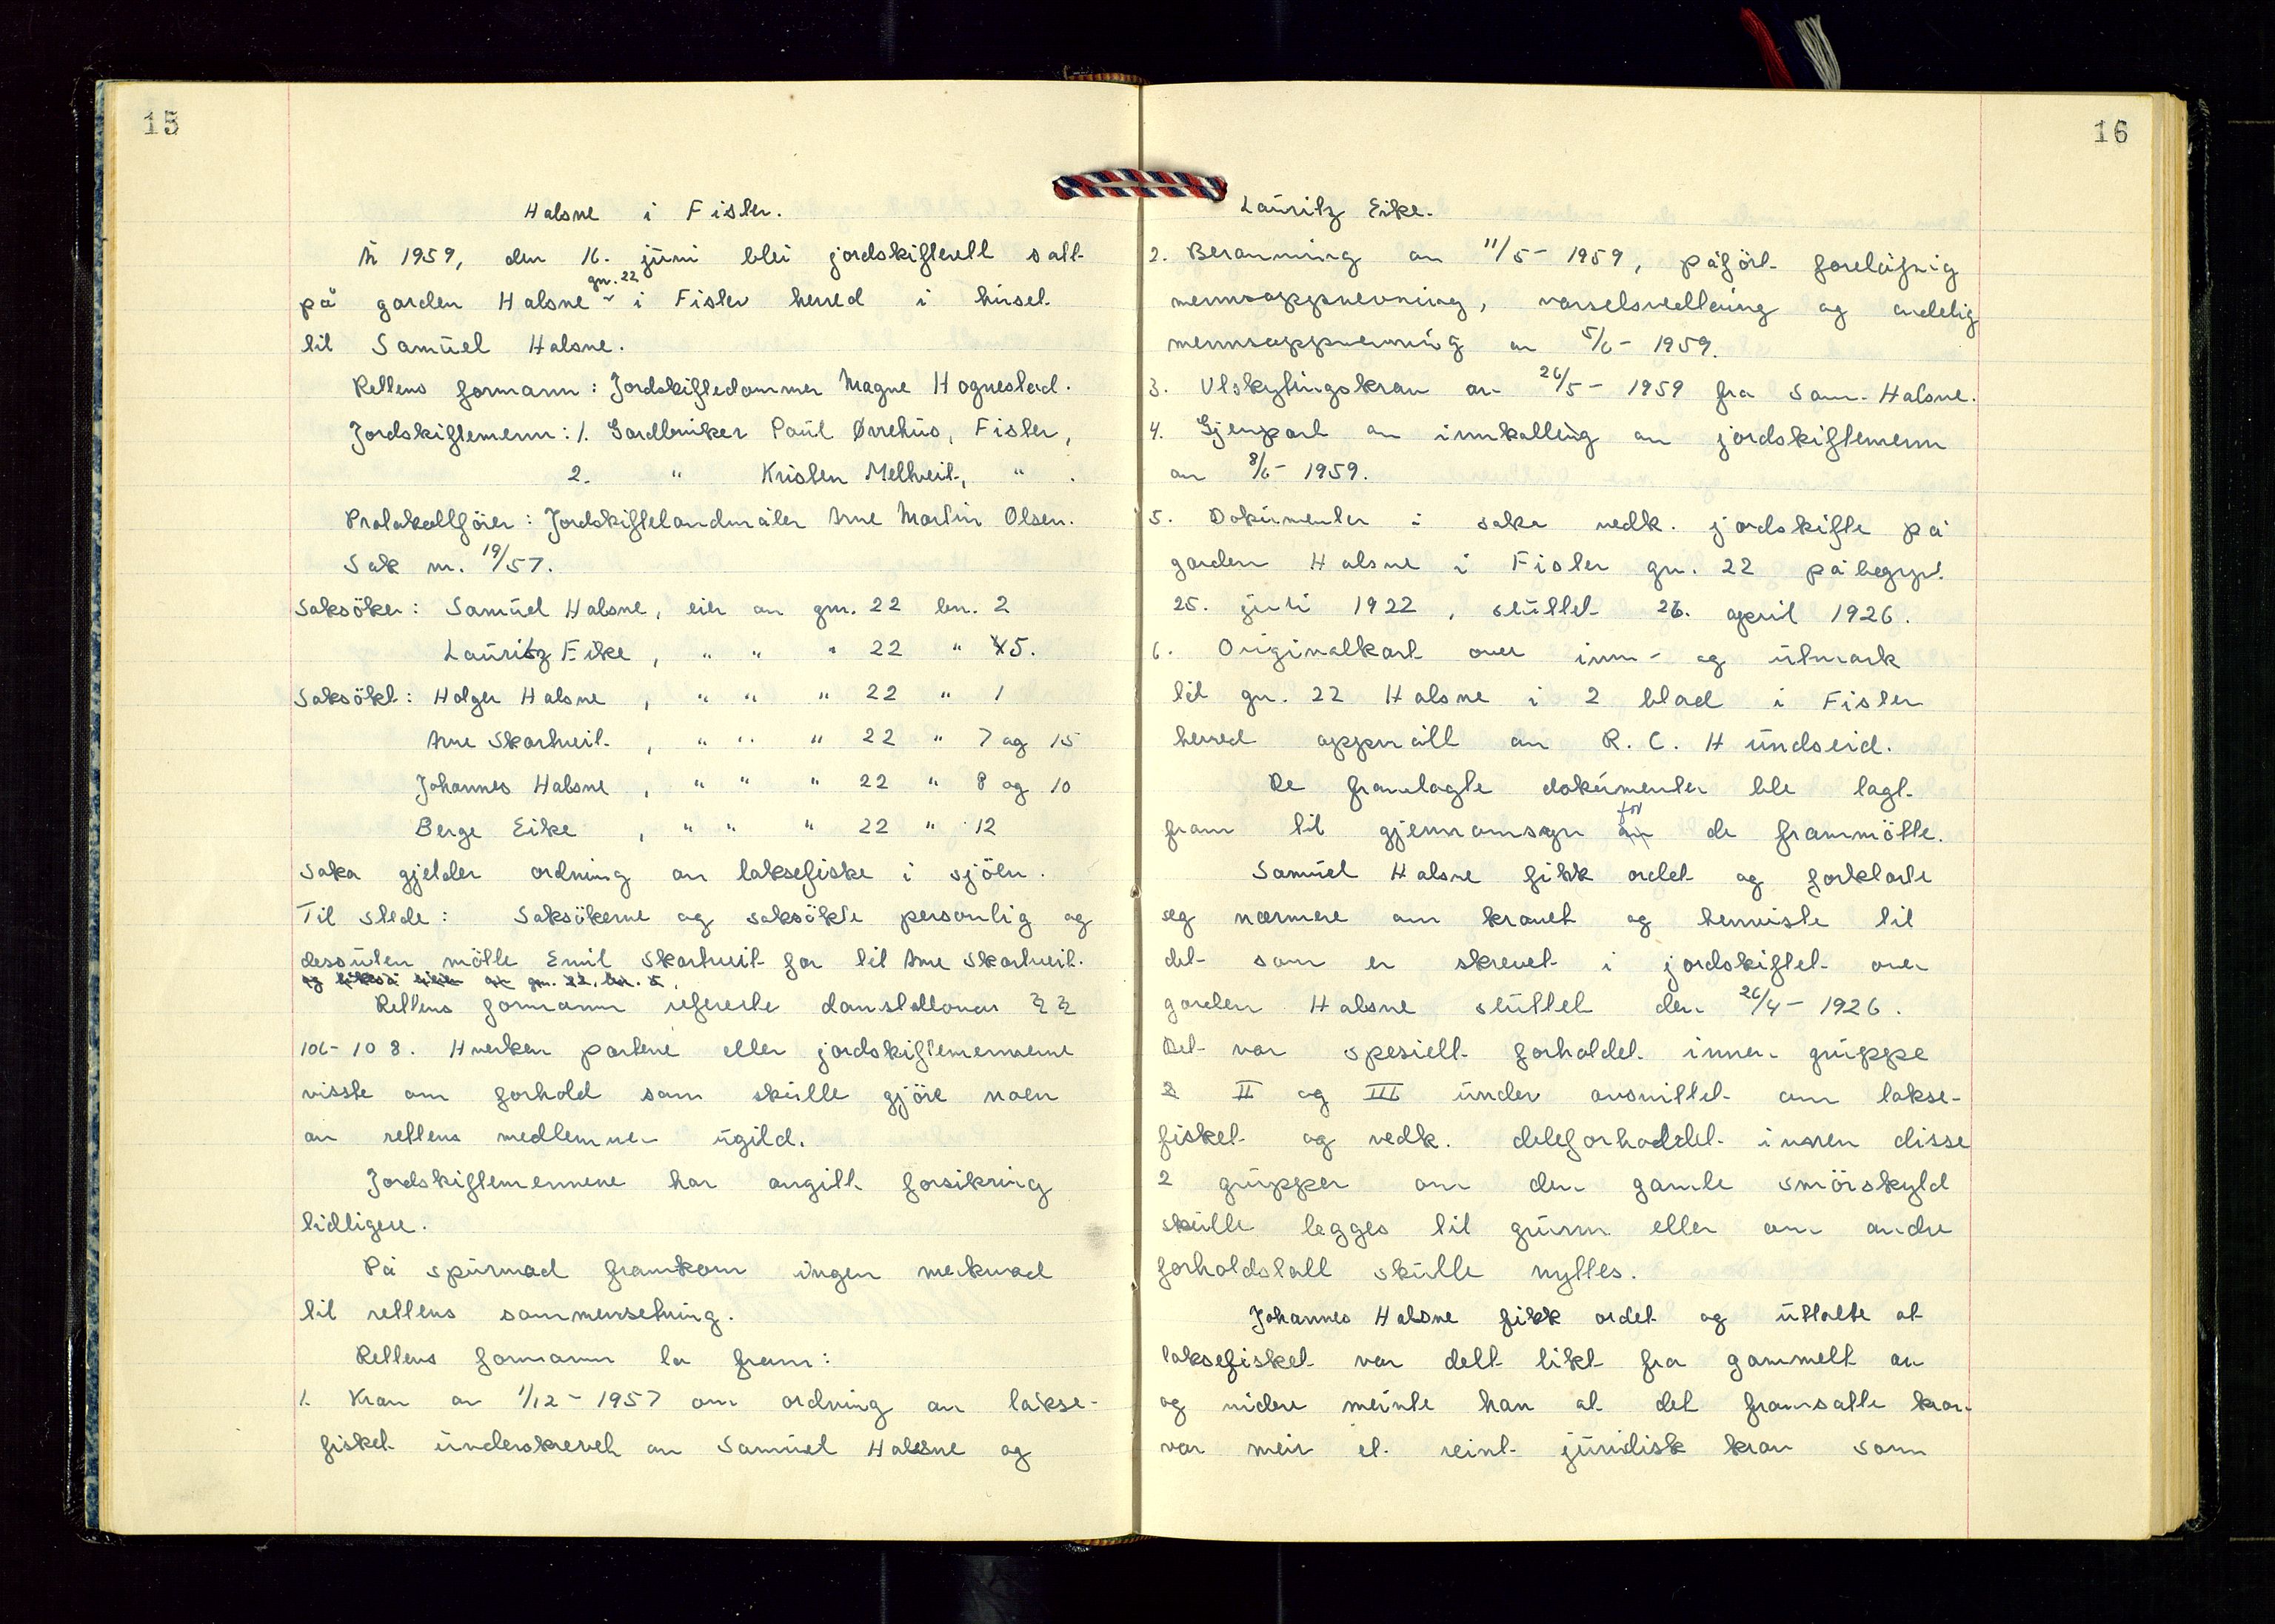 15
Halsne i Fister.
År 1959, den 16. juni blei jordskifterett satt
gnr. 22
på garden Halsne i Fister herred i huset
til Samuel Halsne.
Rettens formann: Jordskiftedommer Magne Hognestad.
Jordskiftemenn: 1. Gardbruker Paul Ørrehus, Fister,
2. " Kristen Metveit, " .
Protokollförer: Jordskiftelandmåler Arne Martin Olsen.
Sak nr. 19/57.
Saksöker: Samuel Halsne, eier av gnr. 22 bnr. 2
Lauritz Eike, " " " 22 " 5.
Saksökt: Holger Halsne, " " " 22 " 1
Arne Skartveit, " " " 22 " 7 og 15
Johannes Halsne, " " " 22 " 8 og 10
Berge Eike, " " " 22 " 12
Saka gjelder ordning av laksefiske i sjöen.
Til stede: Saksökerne og saksökte personlig og
dessuten mötte Emil Skartveit far til Arne Skartveit.
og likeså eier av gnr. 22, bnr. 5.
Rettens formann refererte domstollovens §§
106-108. Hverken partene eller jordskiftemennene
visste om forhold som skulle gjöre noen
av rettens medlemmer ugild.
Jordskiftemennene har avgitt forsikring
tidligere.
På spörmad framkom ingen merknad
til rettens sammensetning.
Rettens formann la fram:
1. Krav av 1/12- 1957 om ordning av lakse-
fisket underskrevet av Samuel Halsne og
16
Lauritz Eike.
2. Beramming av 11/5- 1959, påfört foreløpig
mennsoppnevning, varselsvedtaing og endelig
mennsoppnevning av 5/6- 1959.
3. Utskytingskrav av 26/5- 1959 fra Sam. Halsne.
4. Gjenpart av innkalling av jordskiftemenn
av 8/6- 1959.
5. Dokumenter i saka vedk. jordskifte på
garden Halsne i Fister gnr. 22 påbegynt
25. juli 1922, sluttet 26. april 1926.
6. Originalkart over inn- og utmark
til gnr. 22 Halsne i 2 blad i Fister
herred oppmålt av R. C. Hundseid.
De framlagte dokumenter ble lagt
for
fram til gjennomsyn av de frammötte.
Samuel Halsne fikk ordet og forklarte
seg nærmere om kravet og henviste til
det som er skrevet i jordskiftet over
garden Halsne sluttet den 26/4- 1926.
Det var spesielt forholdet innen gruppe
2 II og III under avsnittet om lakse-
fisket og vedk. deleforholdet innen disse
2 grupper om den gamle smörskyld
skulle legges til grunn eller om andre
forholdstall skulle nyttes.
Johannes Halsne fikk ordet og uttalte at
laksefisket var delt likt fra gammelt av
og videre meinte han at det framsatte krav
var meir et reint juridisk krav som